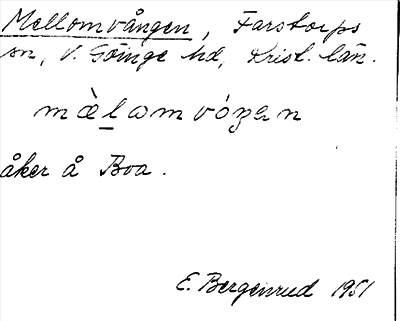 Mellomvången, Farstorps
sn, V. Göinge hd, Krist. län.
mὲlomvóŋɛn
åker å Boa.
E. Bergenrud 1951